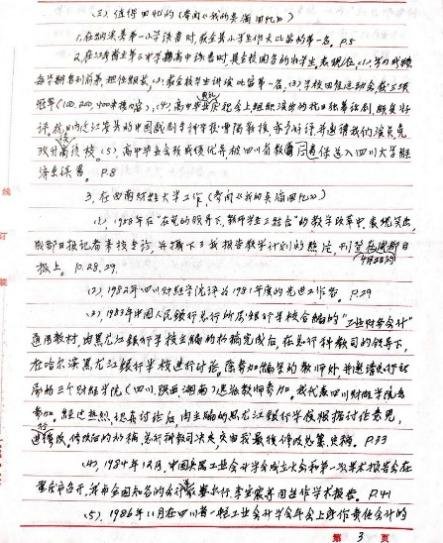 (三)、值得回忆的(参阅《我的直溯回忆》)
1、在纳溪县第一小学读书时,获全县小学生作文比赛的第一名。P.5
2、在泸州省立高中读书时,是全校闻名的小学生,表现在,(1)、学习成绩
每学期名列前茅,担任级长,(2)、获全校学生讲演比赛第一名,(3)、学校田径运动会获三项
冠军(100,200,400米接力赛),(4)、高中毕业晚会上组织演出的抗日独幕话剧颇受好
评,
攻
(5)、高中毕业会考成绩优异,被四川省教育厅选保送入四川大学经
济系读书。 P.8
3、在西南财经大学工作,(参阅《我的直溯回忆》)
(1)、1958年在"在党的领导下,教师学生三结合"的教学改革中,表现突出,
成都日报记者来校专访,并摄下了我报告教学计划的照片,刊登在成都日
报上。 P.28.29 4月22日
(2)、1982年四川财经学院评为1981年度的先进工作者。 P.29
(3)、1983年中国人民银行总行所属银行学校合编的"工业财务会计"
通用教材,由黑龙江银行学校主编的初稿完成后,在总行科教司的领导下,
在哈尔滨黑龙江银行学校进行讨论,除参加编写的教师外,并邀请总行
属的三个财经学院(四川、陕西、湖南)选派教师参加。我代表四川财经学院去
参加。经过热烈、认真讨论后,由主编的黑龙江银行学校根据讨论意见,
进行修改。修改后的初稿,总行科教司决定,交由我最后修改总纂,定稿。 P.33
(4)、1984年12月,中国金属工业会计学会成立大会和第一次学术报告会在
召开,并有全国知名的会计学家 作学术报告。 P.41
(5)、1986年11月在四川省一轻工业会计学会年会上所作责任会计的
第 3 页
线
订
装